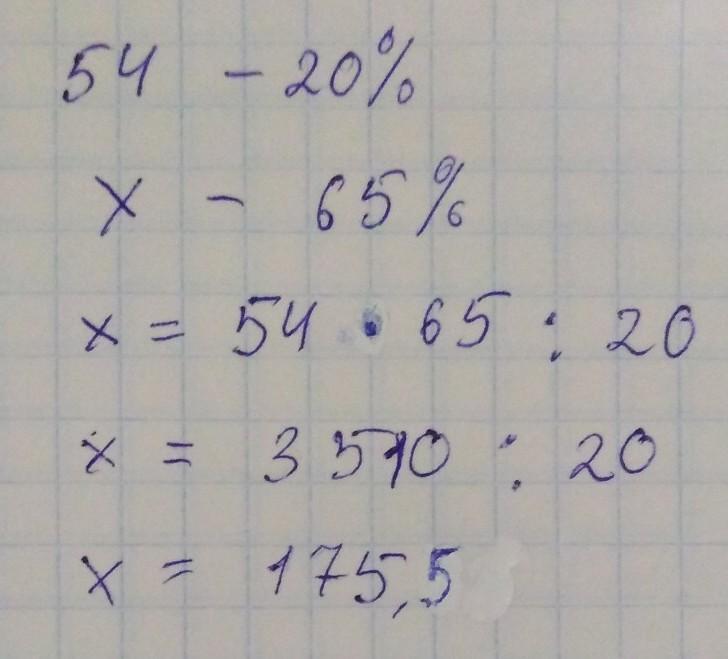 54 - 20%
x - 65%
x = 54 • 65 : 20
x = 3510 : 20
x = 175,5